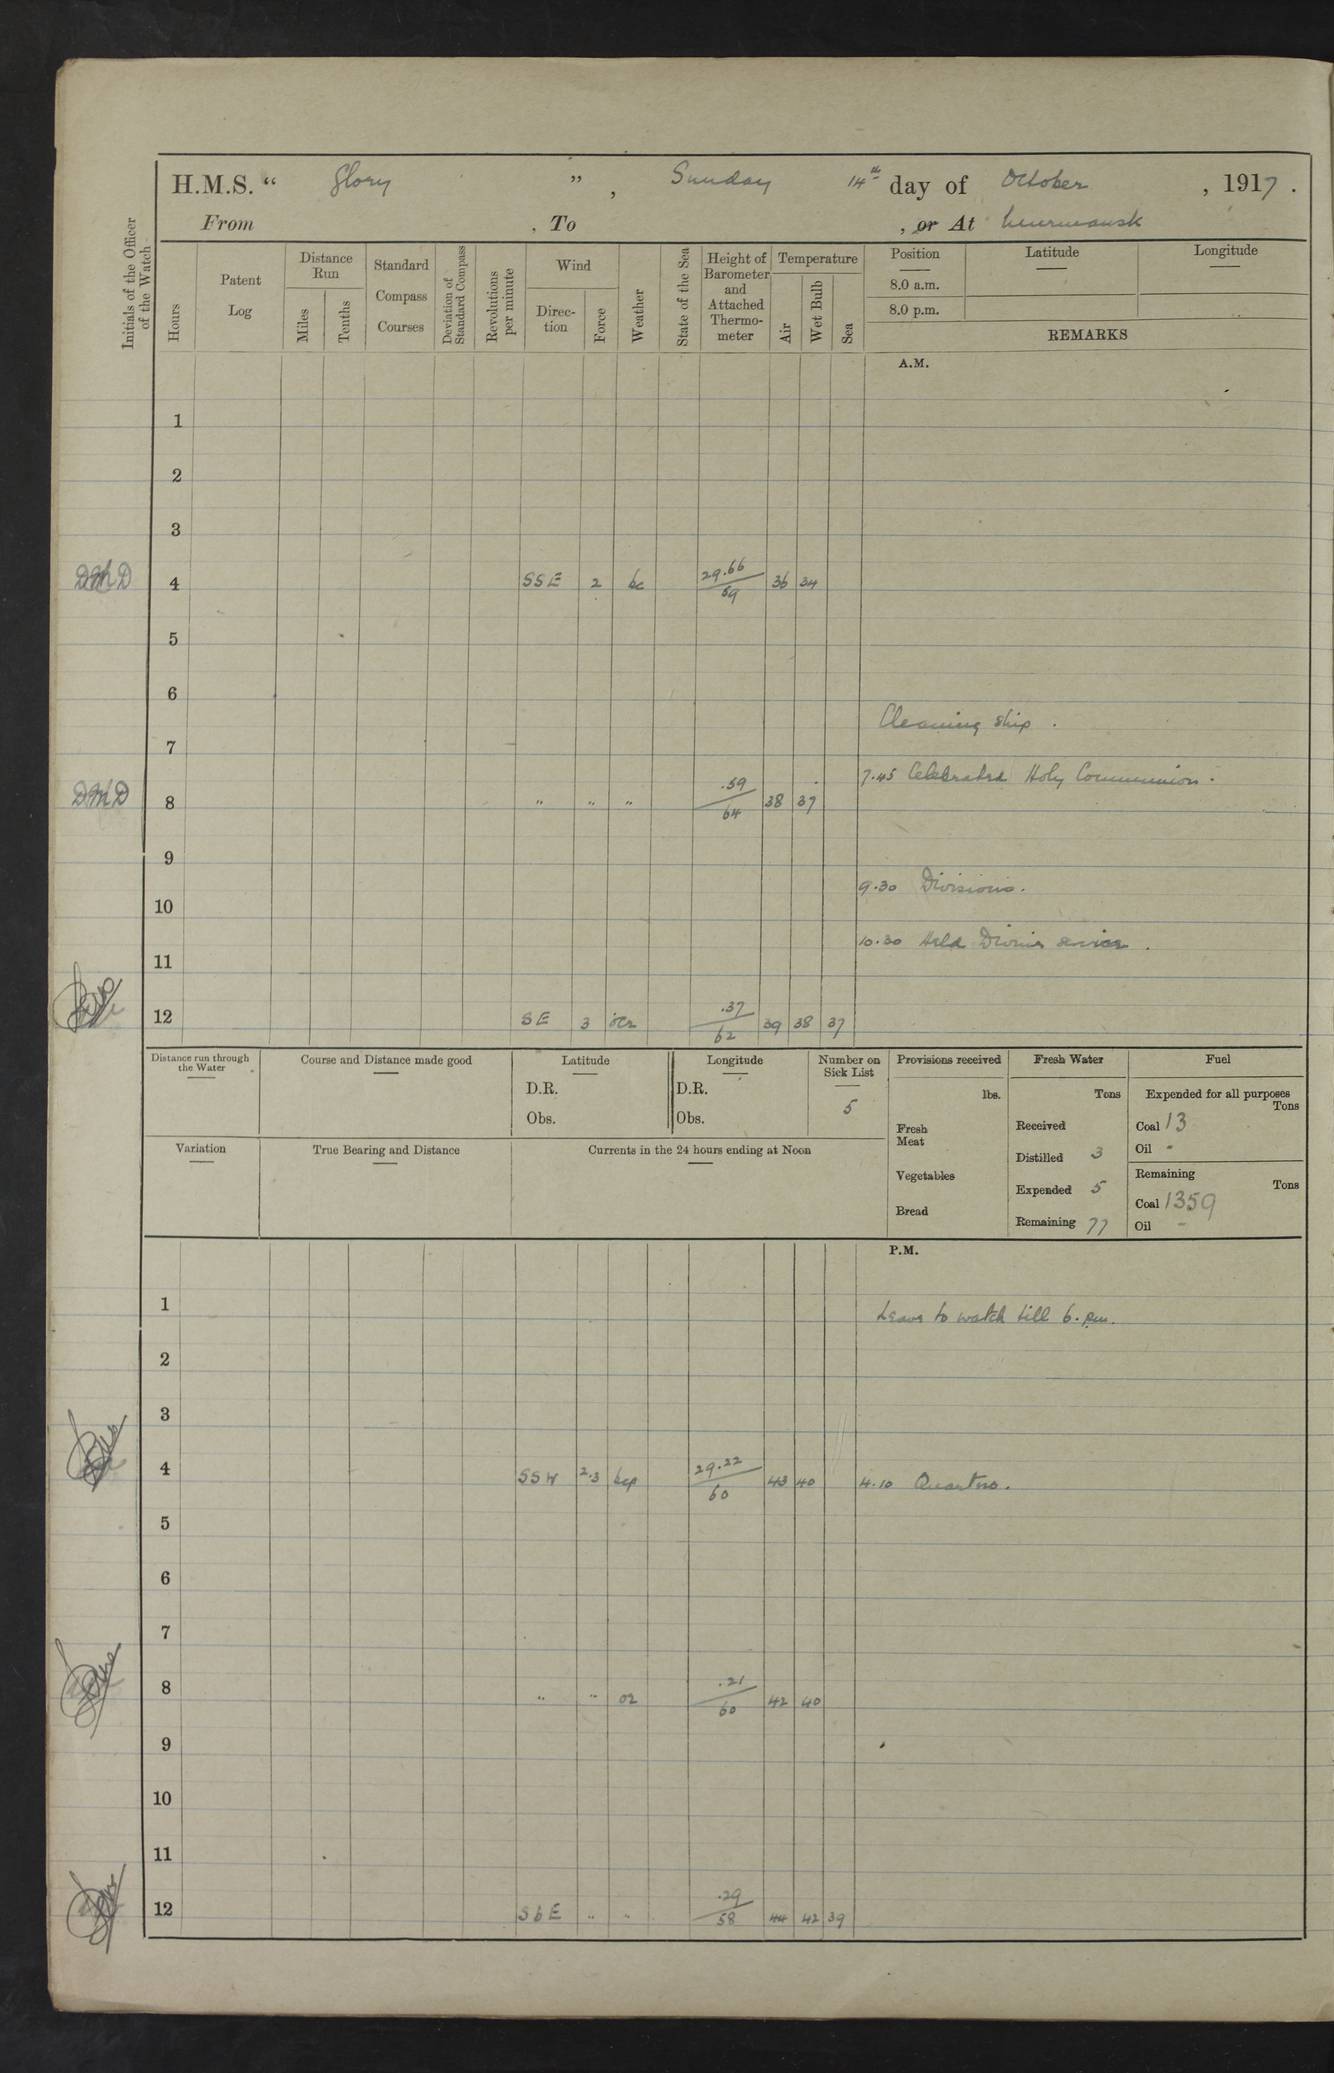 H.M.S. “ Glory ” , Sunday 14th day of October , 1917 .
From , To , or At Murmansk
Initials of the Officer of the Watch
Hours
Patent Log
Distance Run
Miles
Tenths
Standard Compass Courses
Deviation of Standard Compass
Revolutions per minute
Wind
Direction
Force
Weather
State of the Sea
Height of Barometer and Attached Thermometer
Temperature
Air
Wet Bulb
Sea
Position
8.0 a.m.
8.0 p.m.
Latitude
Longitude
REMARKS
A.M.
1
2
3
DMD 4 SSE 2 bc 29.66/59 36 34
5
6
Cleaning ship .
7
7.45 Celebrated Holy Communion .
DMD 8 " " " .59/64 38 37
9
9.30 Divisions.
10
10.30 Held Divine service .
11
12 SE 3 .37/62 39 38 37
Distance run through the Water
Course and Distance made good
Latitude
D.R.
Obs.
Longitude
D.R.
Obs.
Number on Sick List
5
Provisions received
lbs.
Fresh Meat
Vegetables
Bread
Fresh Water
Tons
Received
Distilled 3
Expended 5
Remaining 77
Fuel
Expended for all purposes
Tons
Coal 13
Oil -
Remaining
Tons
Coal 1359
Oil -
Variation
True Bearing and Distance
Currents in the 24 hours ending at Noon
P.M.
1
Leave to watch till 6. pm.
2
3
4 SSW 2.3 bcp 29.22/60 43 40 4.10 Quarters.
5
6
7
8 " " or .21/60 42 40
9
10
11
12 S b E " " .29/58 44 42 39